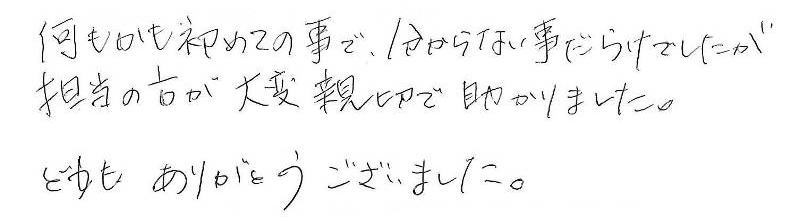 何もかも初めての事で、分からない事だらけでしたが
担当の方が大変親切で助かりました。
どうも ありがとうございました。